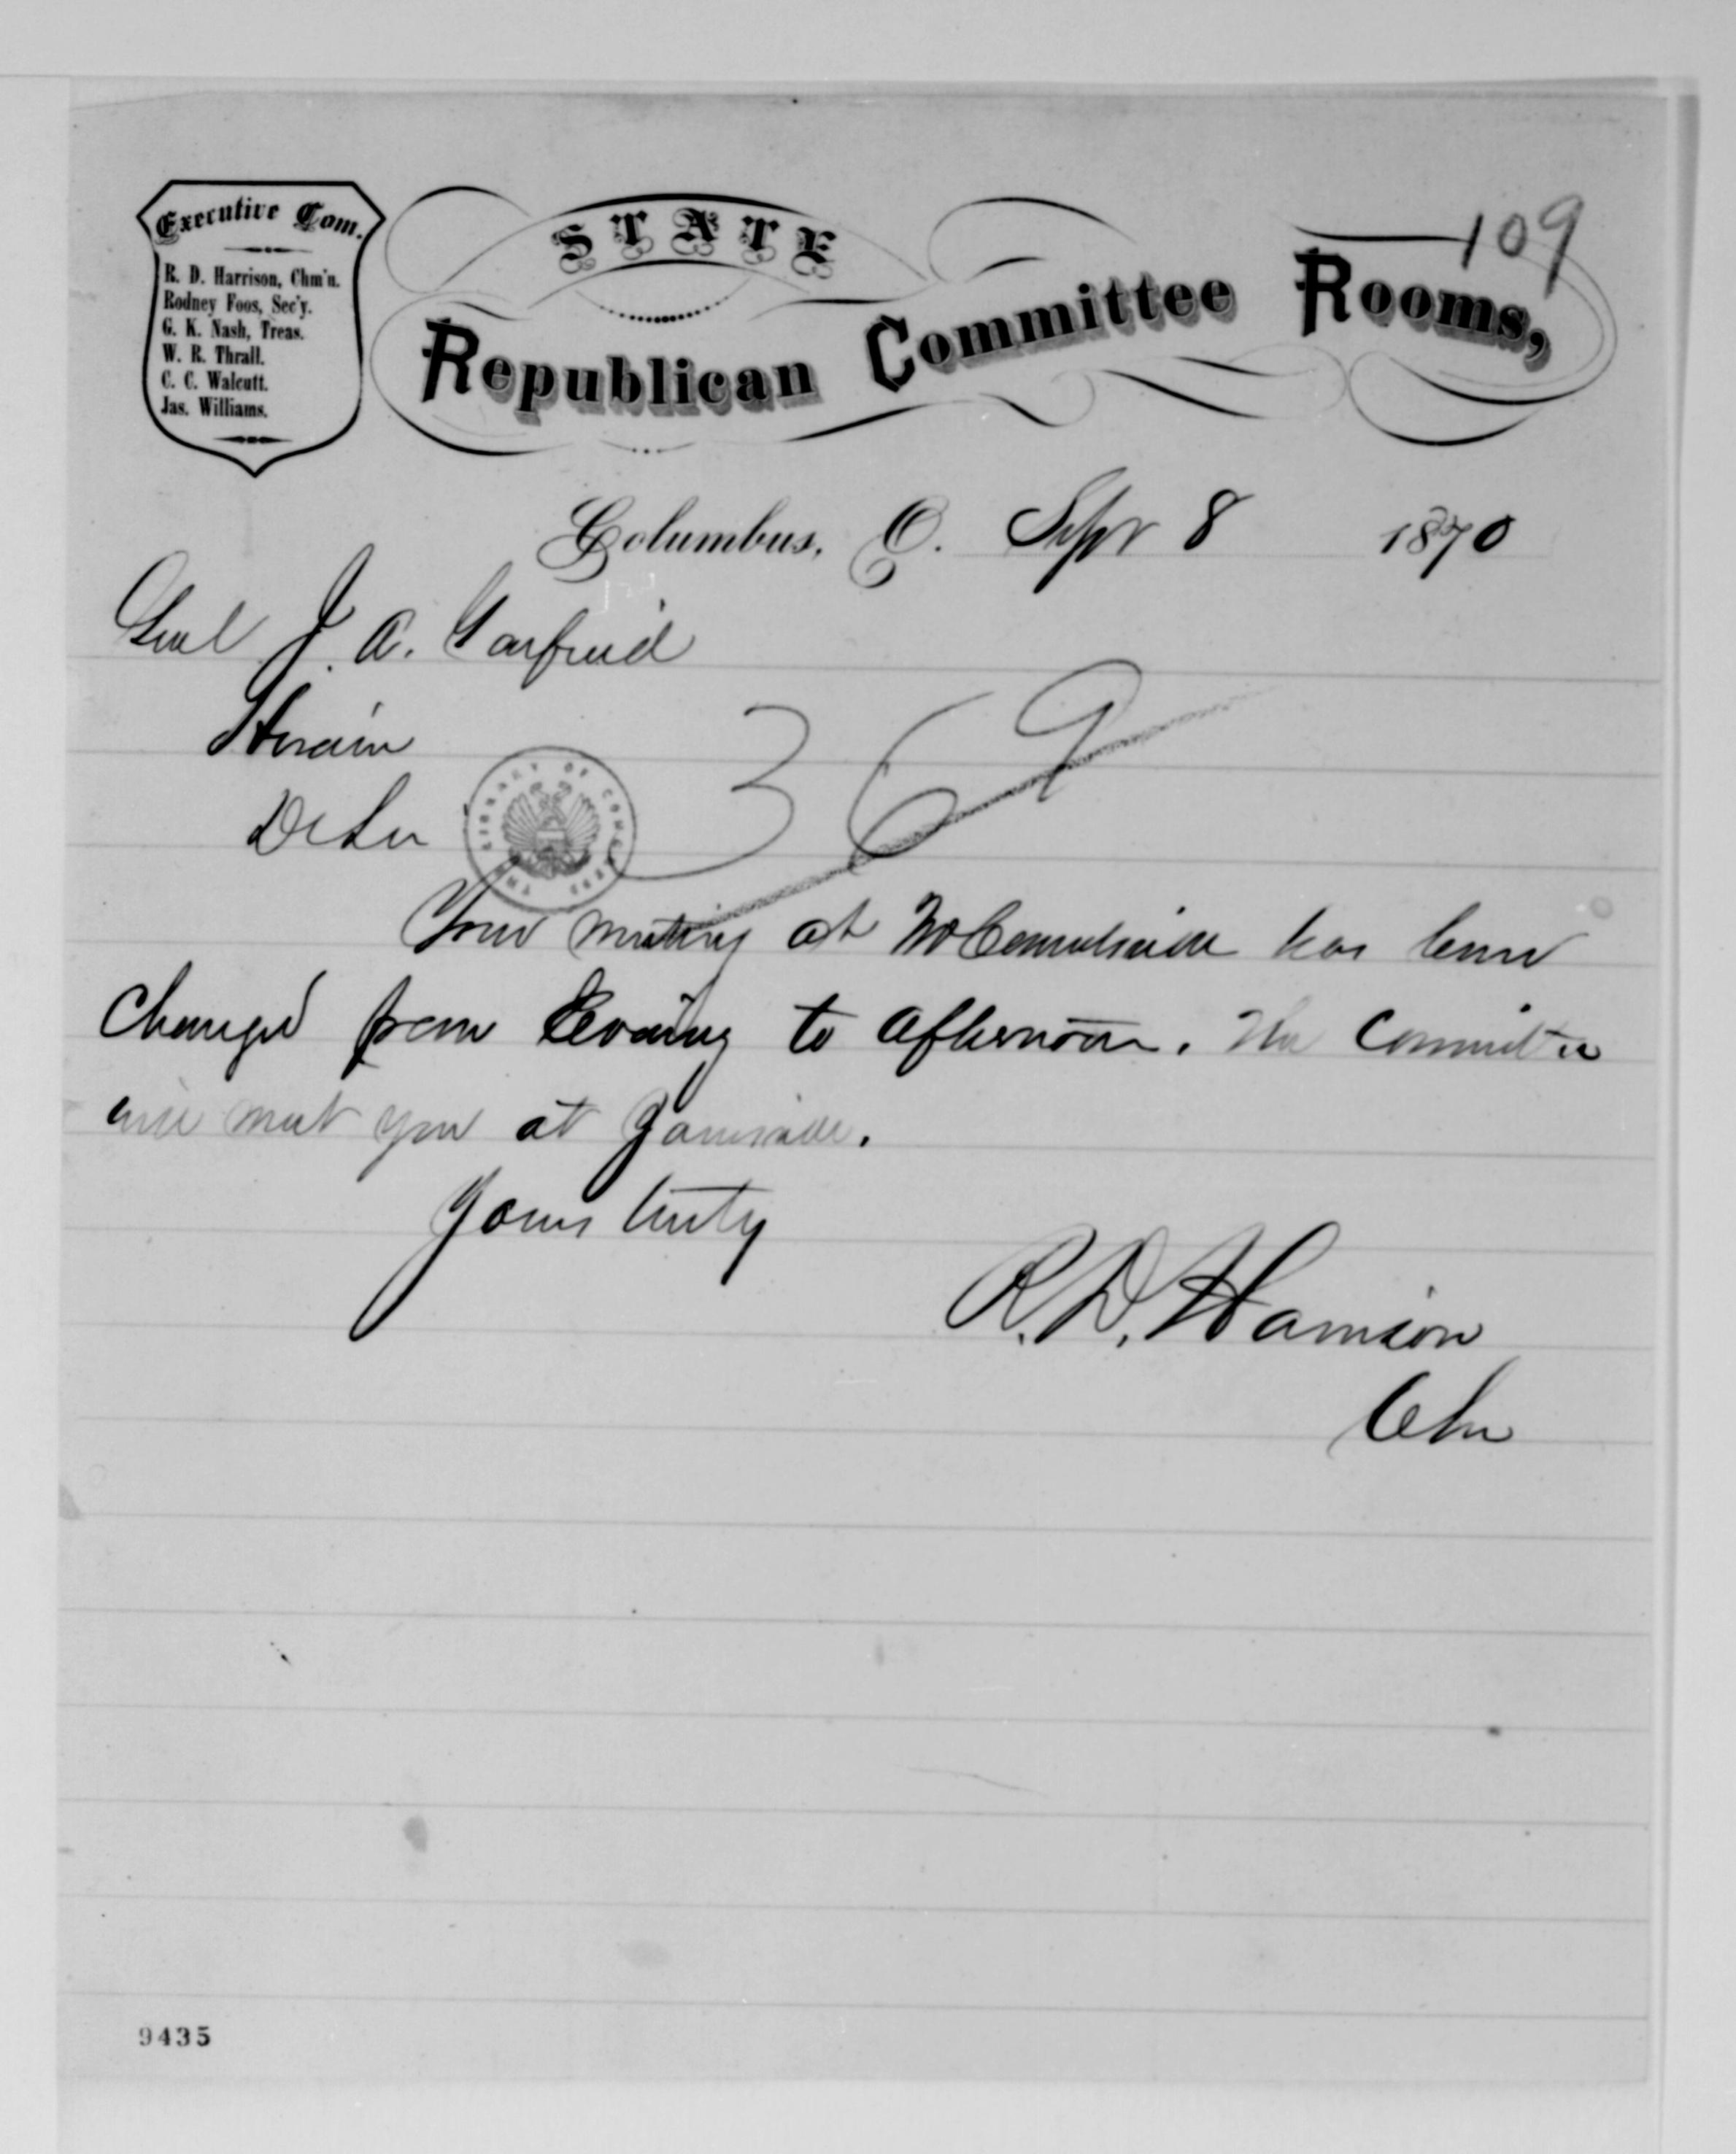 109
Executive Com.
R. D. Harrison, Chm'n.
Rodney Foos, Sec'y.
G. K. Nash, Treas.
W. R. Thrall.
C. C. Walcutt.
Jas. Williams.
STATE
Republican Committee Rooms,
Columbus, O. Sept 8 1870
Genl J. A. Garfield
Hiram
Dr Sir
THE LIBRARY OF CONGRESS
369
Your meeting at McConnelsville has been
changed from Evening to afternoon. The Committee
will meet you at Zanesville.
Yours truly
R. D. Harrison
Chm
9435